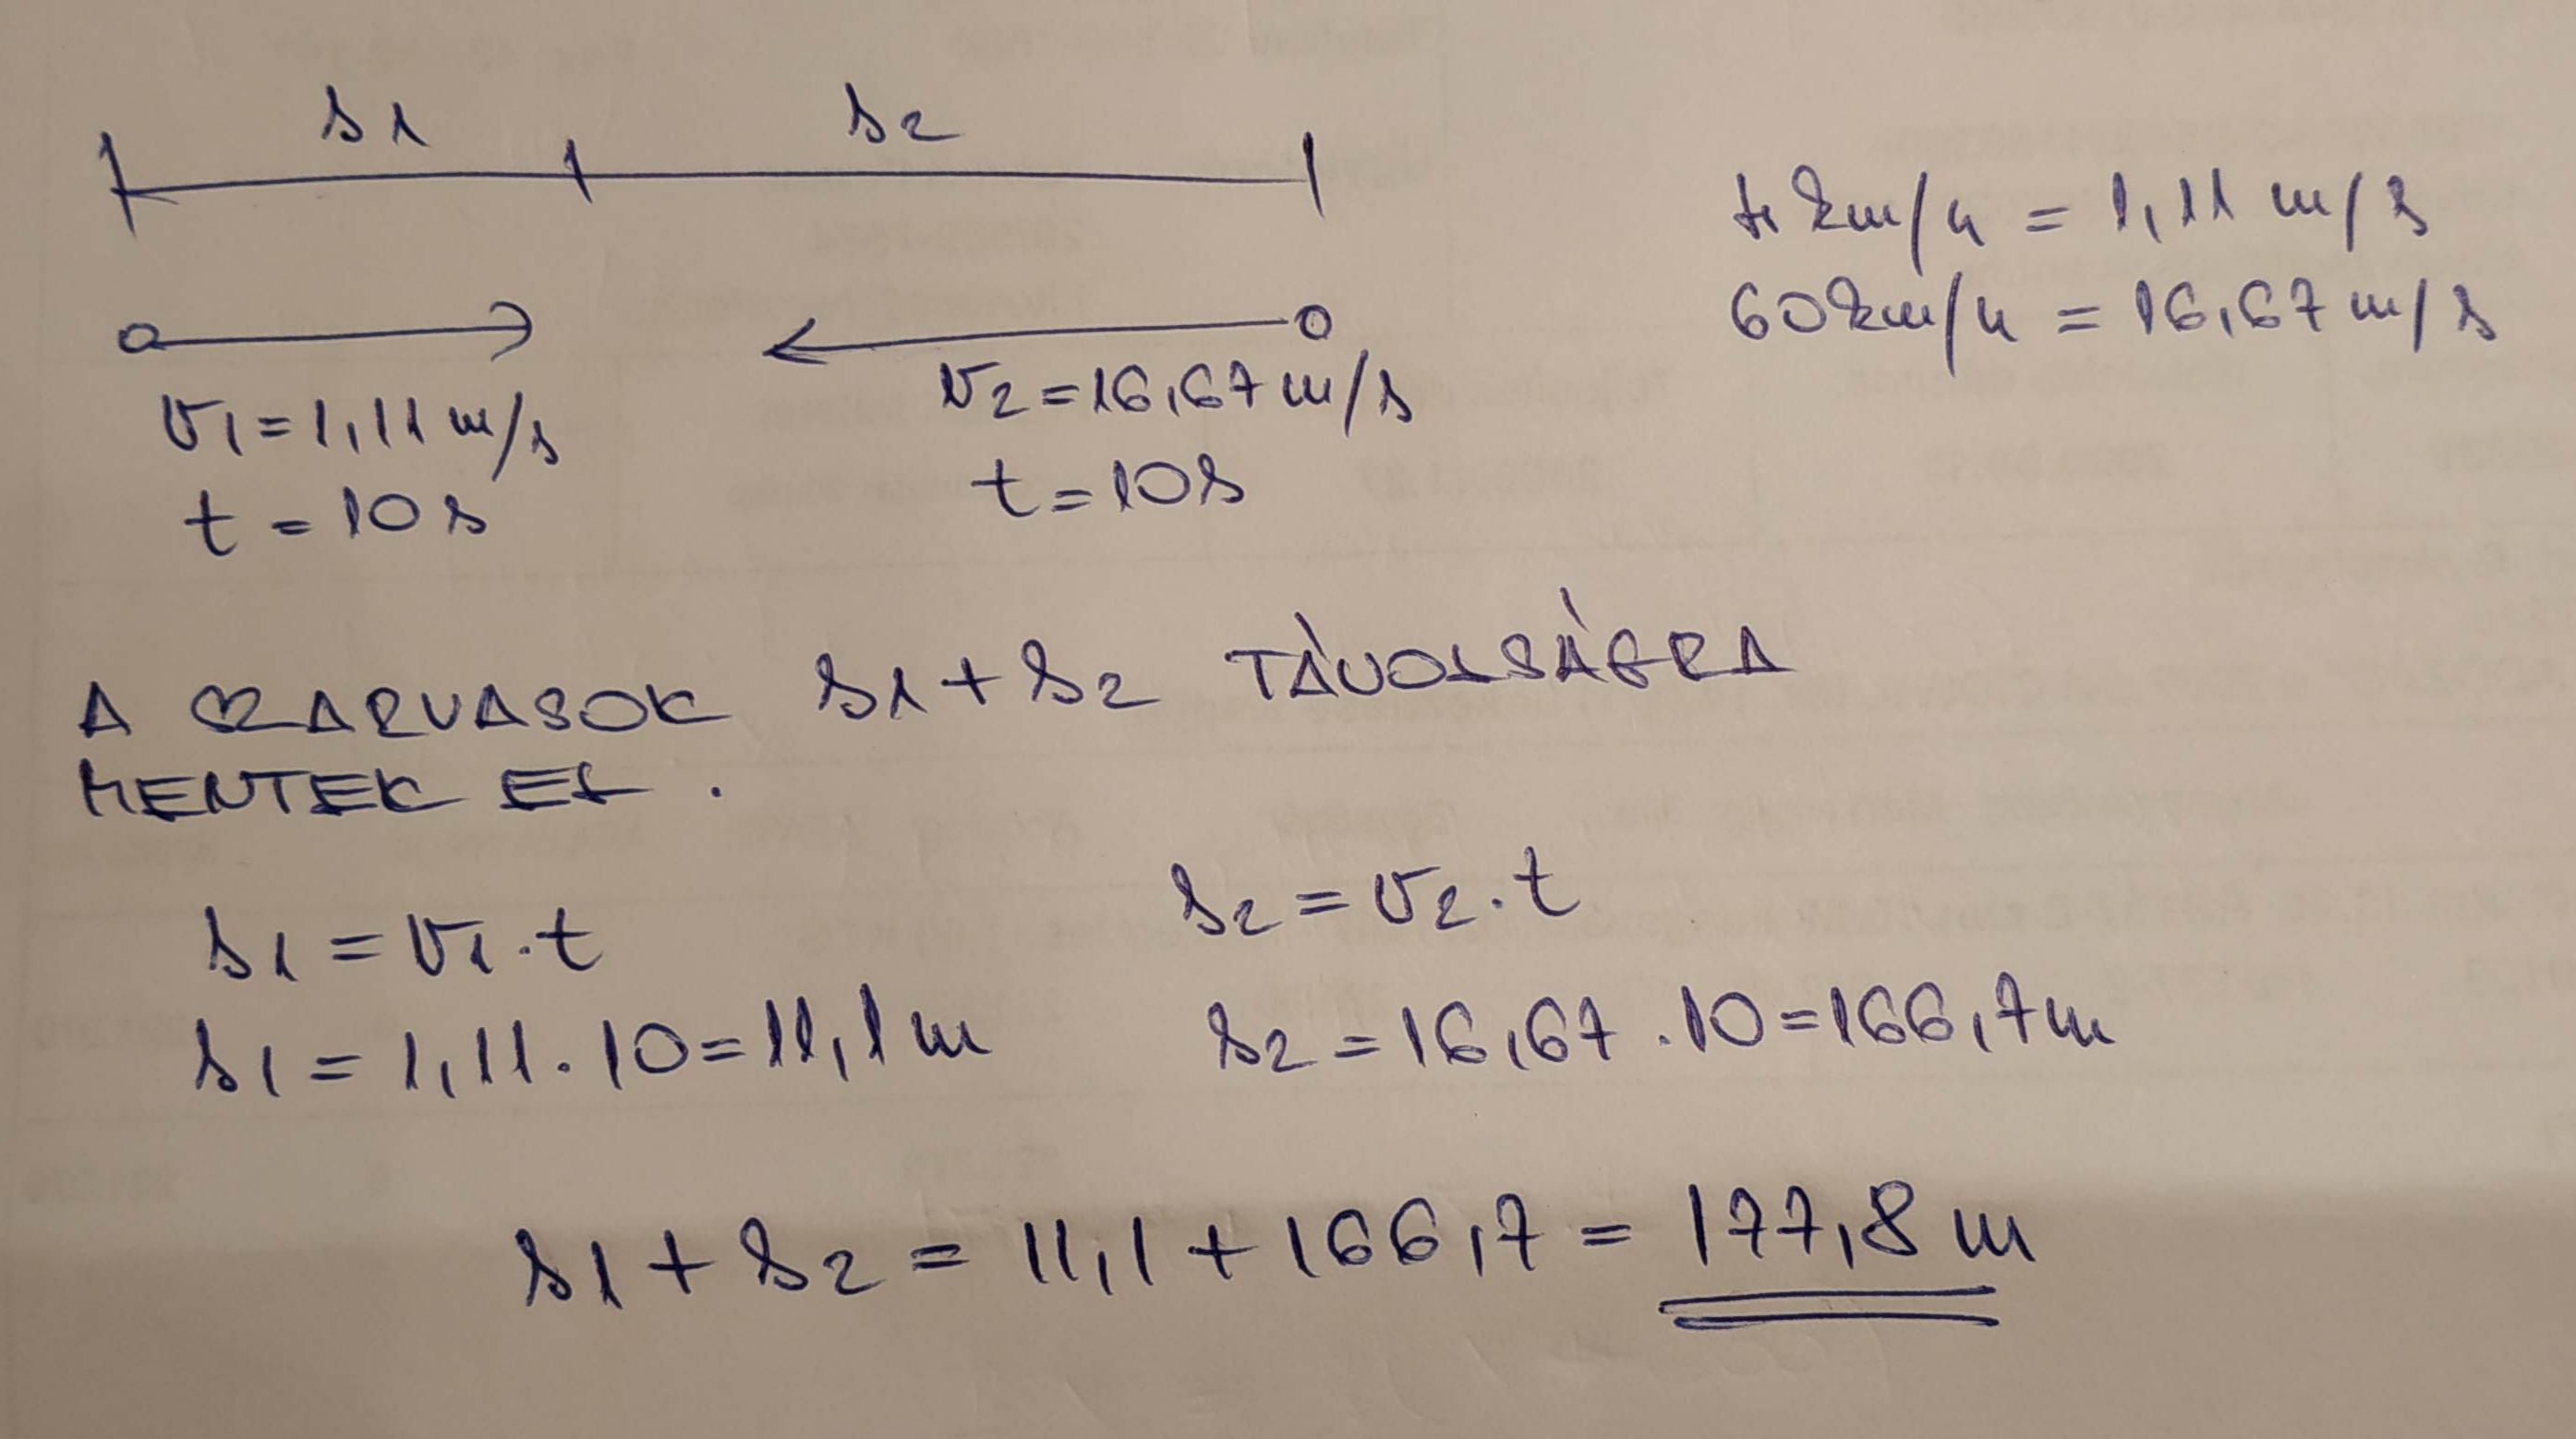 s1 s2
4 km/h = 1,11 m/s
60 km/h = 16,67 m/s
v1 = 1,11 m/s
t = 10 s
v2 = 16,67 m/s
t = 10 s
A SZARVASOK s1 + s2 TÁVOLSÁGRA
MENTEK EL.
s1 = v1 · t
s1 = 1,11 · 10 = 11,1 m
s2 = v2 · t
s2 = 16,67 · 10 = 166,7 m
s1 + s2 = 11,1 + 166,7 = 177,8 m